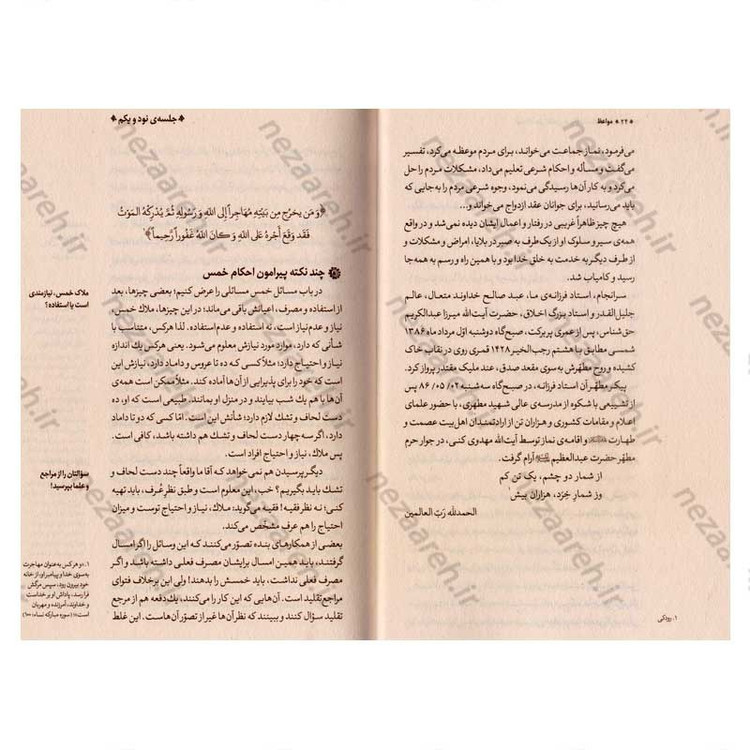 ۲۴ * مواعظ
می‌فرمود، نماز جماعت می‌خواند، برای مردم موعظه می‌کرد، تفسیر
می‌گفت و مسأله و احکام شرعی تعلیم می‌داد، مشکلات مردم را حل
می‌کرد و به کار آن‌ها رسیدگی می‌نمود، وجوه شرعی مردم را به جایی که
باید می‌رسانید، برای جوانان عقد ازدواج می‌خواند و...
هیچ چیز ظاهراً غریبی در رفتار و اعمال ایشان دیده نمی‌شد و در واقع
همه‌ی سیر و سلوک او از یک طرف به صبر در بلایا، امراض و مشکلات و
از طرف دیگر به خدمت به خلق خدا بود و با همین راه و رسم به همه‌جا
رسید و کامیاب شد.
سرانجام، استاد فرزانه‌ی ما، عبد صالح خداوند متعال، عالم
جلیل‌القدر و استاد بزرگ اخلاق، حضرت آیت الله میرزا عبدالکریم
حق‌شناس، پس از عمری پربرکت، صبح‌گاه دوشنبه اوّل مرداد ماه ۱۳۸۶
شمسی مطابق با هشتم رجب‌الخیر ۱۴۲۸ قمری روی در نقاب خاک
کشیده و روح مطهّرش به سوی مقعد صدق، عند ملیک مقتدر پرواز کرد.
پیکر مطهّر آن استاد فرزانه، در صبح‌گاه سه‌شنبه ۰۲/ ۰۵/ ۸۶ پس
از تشییعی با شکوه از مدرسه‌ی عالی شهید مطهری، با حضور علمای
اعلام و مقامات کشوری و هزاران تن از ارادتمندان اهل‌بیت عصمت و
طهارت و اقامه‌ی نماز توسط آیت الله مهدوی کنی، در جوار حرم
مطهّر حضرت عبدالعظیم آرام گرفت.
از شمار دو چشم، یک تن کم
وز شمارِ خِرَد، هزاران بیش
الحمدلله رَبّ العالمین
۱. رودکی
* جلسه‌ی نود و یکم *
﴿وَ مَن یَخرُج مِن بَیتِهِ مُهاجِراً إِلَی اللهِ وَ رَسُولِهِ ثُمَّ یُدرِکهُ المَوتُ
فَقَد وَقَعَ أَجرُهُ عَلَی اللهِ وَ کانَ اللهُ غَفُوراً رَحیماً﴾۱
چند نکته پیرامون احکام خمس
در باب مسائل خمس مسائلی را عرض کنیم؛ بعضی چیزها، بعد
از استفاده و مصرف، اعیانش باقی می‌ماند؛ در این چیزها، ملاك خمس،
نیاز و عدم نیاز است، نه استفاده و عدم استفاده. لذا هرکس، متناسب با
شأنی که دارد، موارد مورد نیازش معلوم می‌شود. یعنی هرکس یك اندازه
نیاز و احتیاج دارد؛ مثلاً کسی که ده تا عروس و داماد دارد، نیازش این
است که خود را برای پذیرایی از آن‌ها آماده کند. مثلاً ممکن است همه‌ی
آن‌ها با هم یك شب بیایند و در منزل او بمانند. طبیعی است که او، ده
دست لحاف و تشك لازم دارد؛ شأنش این است. امّا کسی که دو تا داماد
دارد، اگر سه چهار دست لحاف و تشك هم داشته باشد، کافی است.
پس ملاك، نیاز و احتیاج افراد است.
دیگر پرسیدن هم نمی‌خواهد که آقا ما واقعاً چند دست لحاف و
تشك باید بگیریم؟ خب، این معلوم است و طبق نظرِ عُرف، باید تهیه
کنی؛ نه نظر فقیه! فقیه می‌گوید: ملاك، نیاز و احتیاج توست و میزان
احتیاج را هم عرف مشخّص می‌کند.
بعضی از همکارهای بنده تصوّر می‌کنند که این وسائل را اگر امسال
گرفتند، باید همین امسال برایشان مصرف فعلی داشته باشد و اگر
مصرف فعلی نداشت، باید خمسش را بدهند! ولی این برخلاف فتوای
مراجع تقلید است. آن‌هایی که این کار را می‌کنند، یك دفعه هم از مرجع
تقلید سؤال کنند و ببینند که نظر آن‌ها غیر از تصوّر آن‌هاست. این غلط
ملاک خمس، نیازمندی
است یا استفاده؟
سؤالتان را از مراجع
و علما بپرسید!
۱. «و هر کس به عنوان مهاجرت
به‌سوی خدا و پیامبر او، از خانه
خود بیرون رود، سپس مرگش
فرا رسد، پاداش او بر خداست
و خداوند، آمرزنده و مهربان
است» (سوره مبارکه نساء: ۱۰۰)
nezaareh.ir